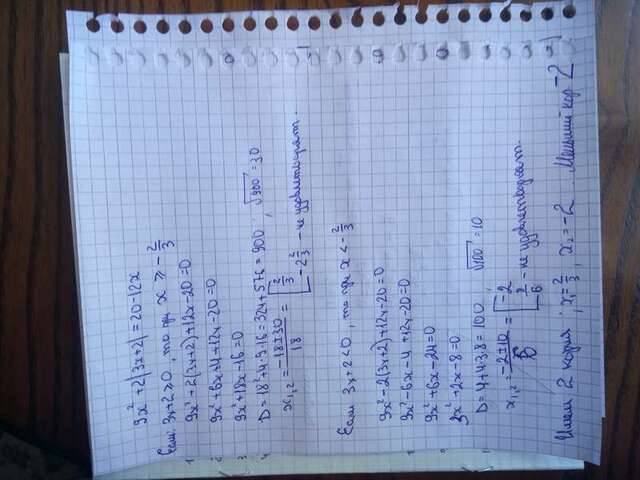 9x² + 2|3x+2| = 20-12x
Если: 3x+2≥0, то при x ≥ -2/3
9x² + 2(3x+2)+12x-20=0
9x² + 6x+4+12x-20=0
9x²+18x-16=0
D = 18²+4·9·16=324+576=900 ; √900=30
x₁,₂ = (-18±30)/18 = [ 2/3
-2 2/3 - не удовлетворят.
Если 3x+2<0, то при x<-2/3
9x²-2(3x+2)+12x-20=0
9x²-6x-4+12x-20=0
9x²+6x-24=0
3x²+2x-8=0
D=4+4·3·8=100 √100=10
x₁,₂ = (-2±10)/6 = [ -2
8/6 - не удовлетворят.
Имеем 2 корня ; x₁=2/3 , x₂=-2 Меньший кор -2